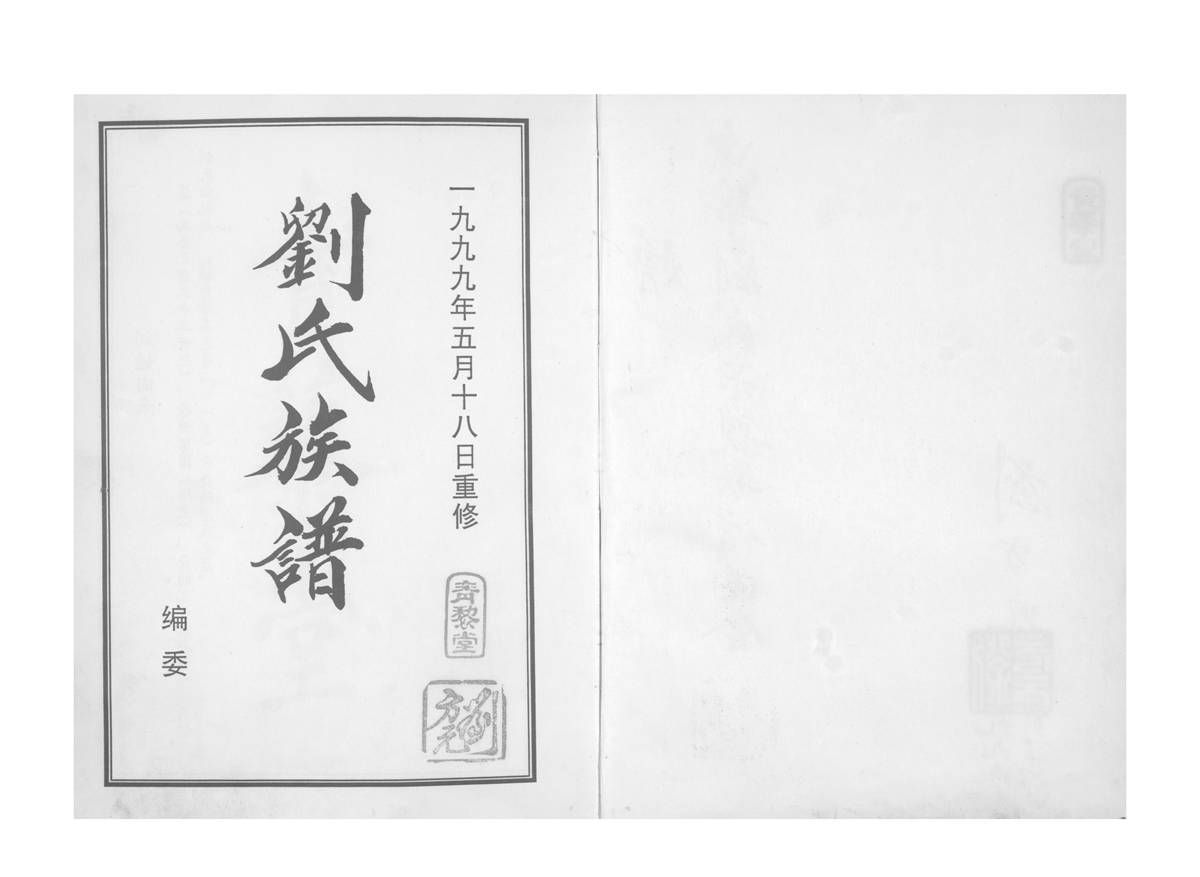 一九九九年五月十八日重修
劉氏族譜
编委
青黎堂